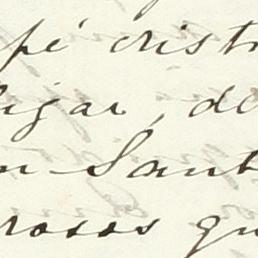 fé crist
ligar, de
n Sant
rosos qu